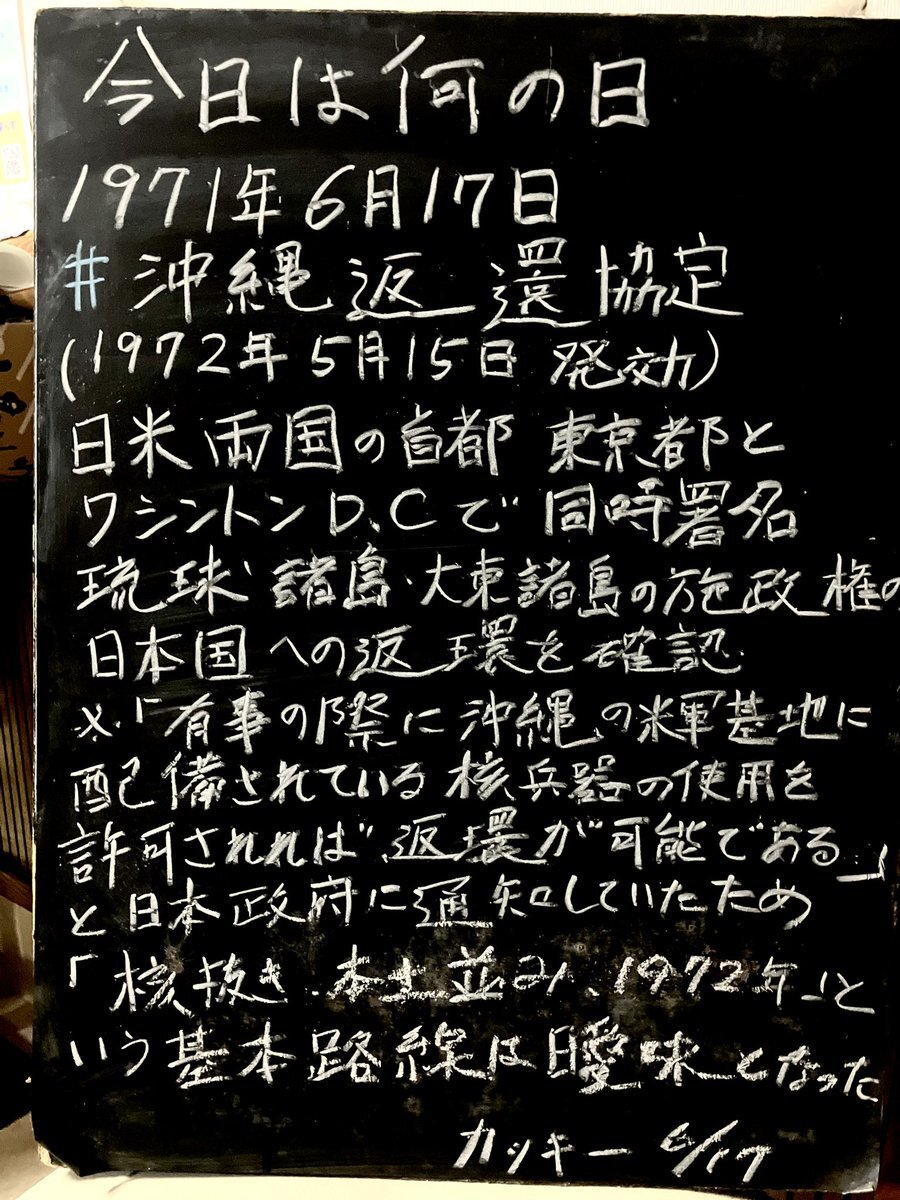 今日は何の日
1971年6月17日
#沖縄返還協定
(1972年5月15日 発効)
日米両国の首都 東京都と
ワシントンD.Cで同時署名
琉球諸島・大東諸島の施政権の
日本国への返環を確認
※「有事の際に沖縄の米軍基地に
配備されている核兵器の使用を
許可されれば返環が可能である」
と日本政府に通知していたため
「核抜き、本土並み、1972年」と
いう基本路線は曖昧となった
カッキー 6/17